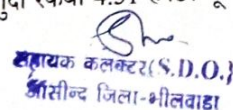 सहायक कलक्टर(S.D.O.)
आसीन्द जिला-भीलवाड़ा